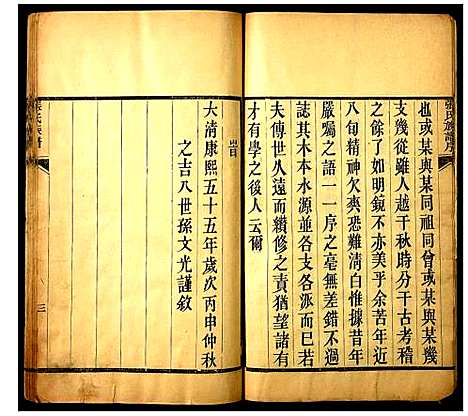 張氏族譜序
也或某與某同祖同曾或某與某幾
支幾從雖人越千秋時分千古稽
之餘了如明鏡不亦美乎余苦年近
八旬精神欠爽恐難清白惟據昔年
嚴嘱之語一一序之毫無差錯不過
誌其木本水源並各支各派而已至
夫傳世人遠而纘修之責猶望諸有
才有學之後人云爾
旹
大清康熙五十五年歲次丙申仲秋
之吉八世孫文光謹敘
張氏族譜
三